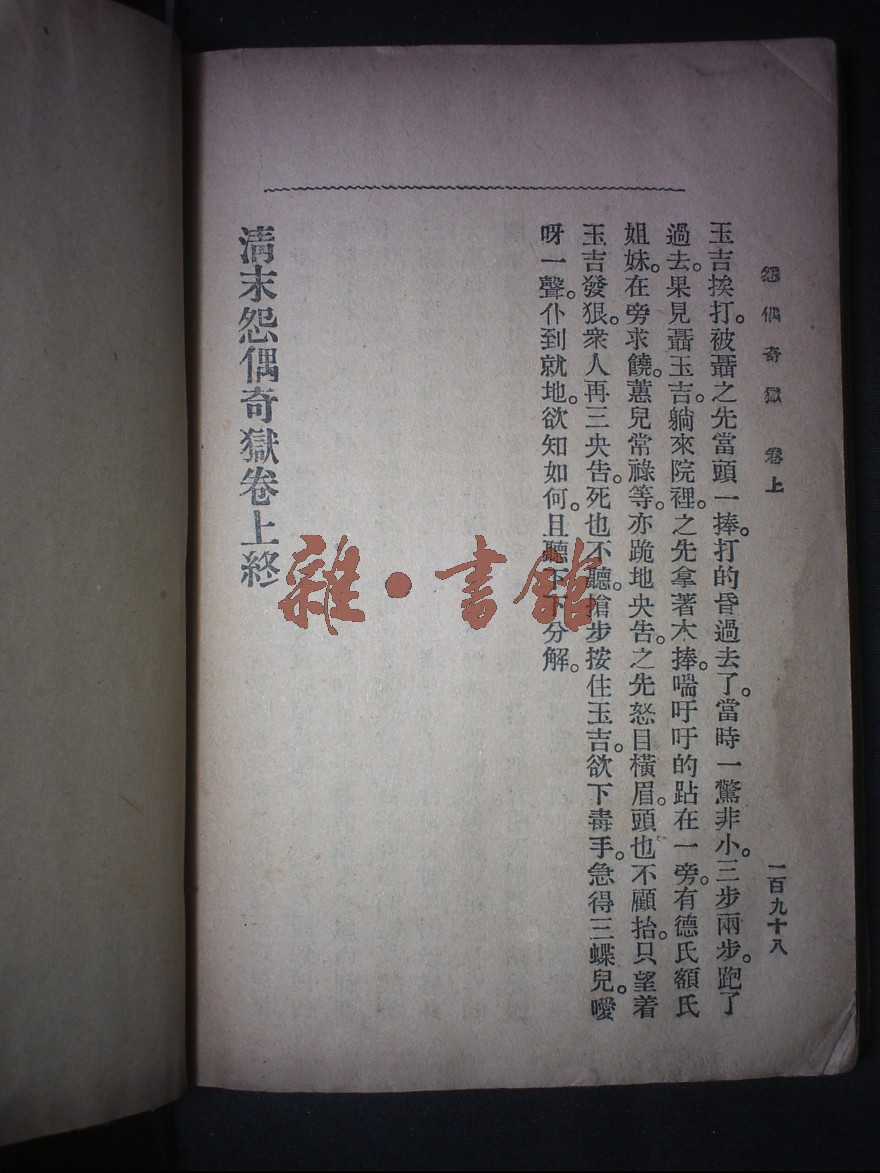 怨偶奇獄 卷上
一百九十八
玉吉挨打。被聶之先當頭一捧。打的昏過去了。當時一驚非小。三步兩步。跑了
過去。果見聶玉吉。躺來院裡。之先拿著木捧。喘吁吁的跕在一旁。有德氏額氏
姐妹。在旁求饒。蕙兒常祿等。亦跪地央告。之先怒目橫眉。頭也不顧抬。只望着
玉吉發狠。衆人再三央告。死也不聽。搶步按住玉吉。欲下毒手。急得三蝶兒。噯
呀一聲。仆到就地。欲知如何。且聽下下分解。
清末怨偶奇獄卷上終
雜·書館